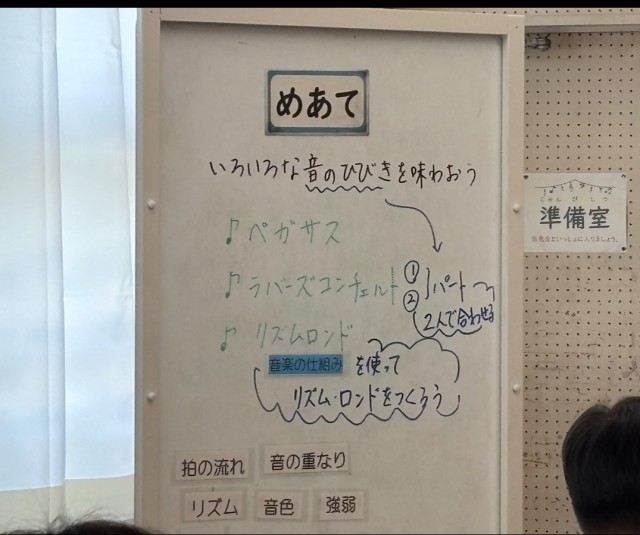 めあて
いろいろな音のひびきを味わおう
♪ペガサス
♪ラバーズコンチェルト ① ② パート
2人で合わせる
♪リズムロンド
音楽の仕組み を使って
リズム・ロンドをつくろう
拍の流れ 音の重なり
リズム 音色 強弱
じゅんびしつ
準備室